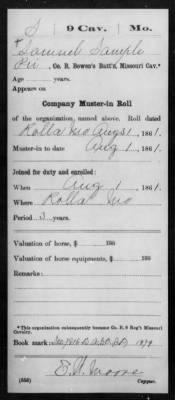 S 9 Cav. Mo.
* Samuel Sample
Pvt, Co. B. Bowen's Batt'n, Missouri Cav.*
Age years.
Appears on
Company Muster-in Roll
of the organization named above. Roll dated
Rolla Mo Aug 1, 1861.
Muster-in to date Aug 1, 1861.
Joined for duty and enrolled:
When Aug 1, 1861.
Where Rolla Mo
Period 3 years.
Valuation of horse, $ 100
Valuation of horse equipments, $ 100
Remarks:
* This organization subsequently became Co. E, 9 Reg't Missouri
Cavalry.
Book mark: 1879
Moore
(356) Copyist.